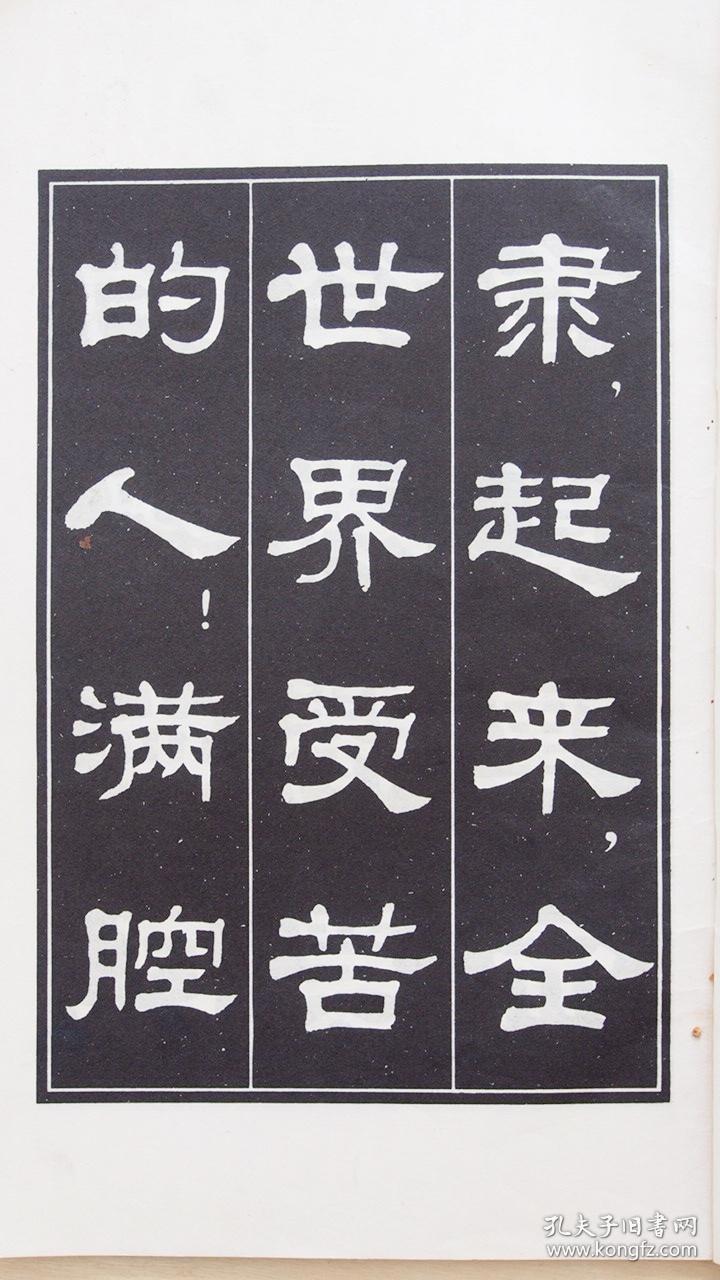 隶，起来，全
世界受苦
的人！满腔
孔夫子旧书网
www.kongfz.com